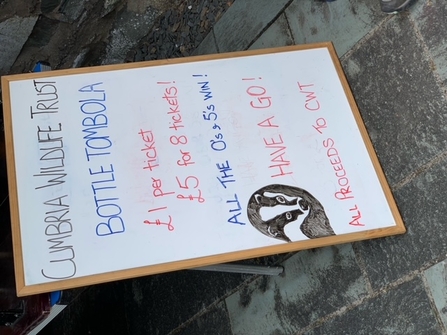 CUMBRIA WILDLIFE TRUST
BOTTLE TOMBOLA
£1 per ticket
£5 for 8 tickets!
ALL THE 0's & 5's WIN!
HAVE A GO!
ALL PROCEEDS TO CWT